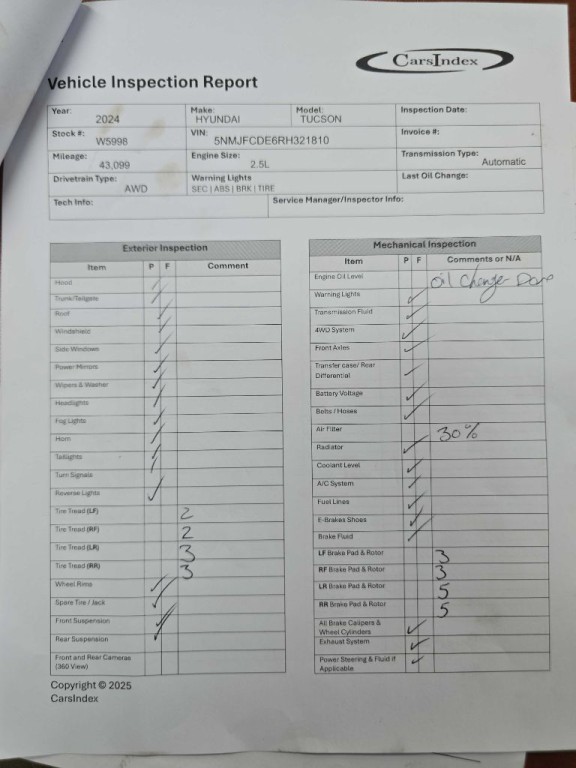 CarsIndex
Vehicle Inspection Report
Year: 2024 Make: HYUNDAI Model: TUCSON Inspection Date:
Stock #: W5998 VIN: 5NMJFCDE6RH321810 Invoice #:
Mileage: 43,099 Engine Size: 2.5L Transmission Type: Automatic
Drivetrain Type: AWD Warning Lights SEC | ABS | BRK | TIRE Last Oil Change:
Tech Info: Service Manager/Inspector Info:
Exterior Inspection
Item P F Comment
Hood
Trunk/Tailgate
Roof
Windshield
Side Windows
Power Mirrors
Wipers & Washer
Headlights
Fog Lights
Horn
Taillights
Turn Signals
Reverse Lights
Tire Tread (LF) 2
Tire Tread (RF) 2
Tire Tread (LR) 3
Tire Tread (RR) 3
Wheel Rims
Spare Tire / Jack
Front Suspension
Rear Suspension
Front and Rear Cameras
(360 View)
Mechanical Inspection
Item P F Comments or N/A
Engine Oil Level oil change Done
Warning Lights
Transmission Fluid
4WD System
Front Axles
Transfer case/ Rear
Differential
Battery Voltage
Belts / Hoses
Air Filter 30%
Radiator
Coolant Level
A/C System
Fuel Lines
E-Brakes Shoes
Brake Fluid
LF Brake Pad & Rotor 3
RF Brake Pad & Rotor 3
LR Brake Pad & Rotor 5
RR Brake Pad & Rotor 5
All Brake Calipers &
Wheel Cylinders
Exhaust System
Power Steering & Fluid if
Applicable
Copyright © 2025
CarsIndex